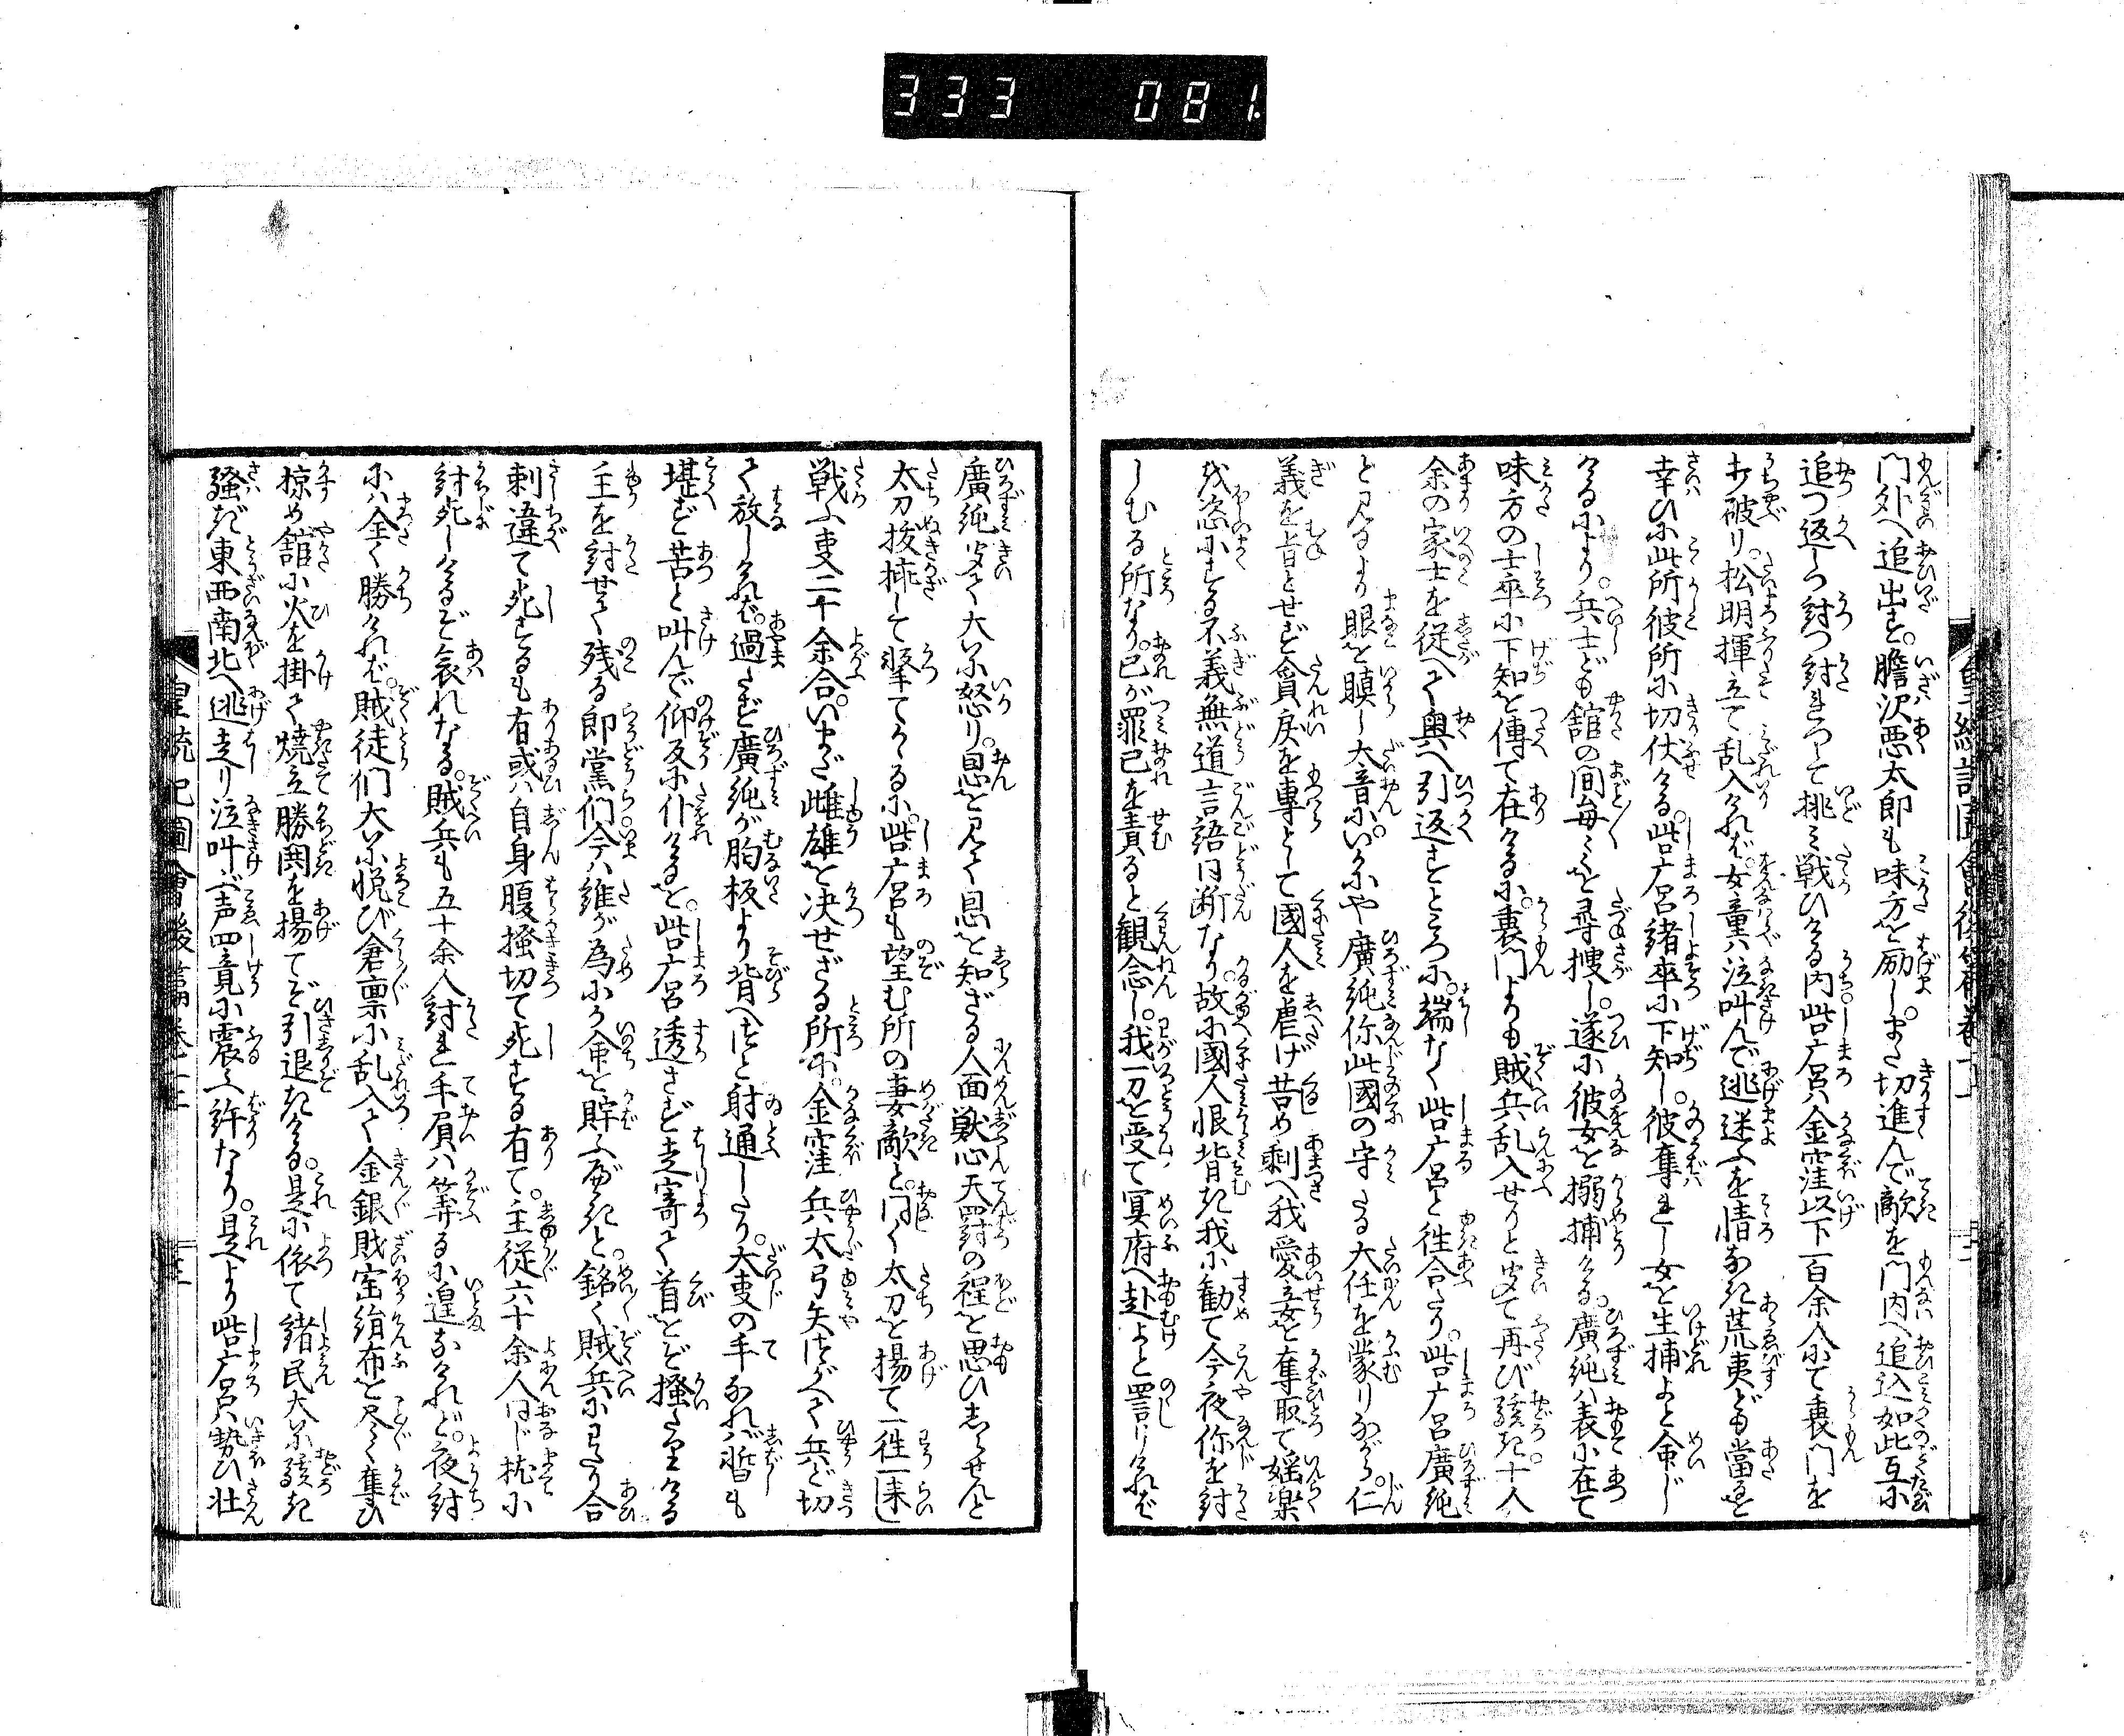 333 081
門外へ追出せど。膽沢悪太郎も味方を励し。また切進んで敵を門内へ追込如此互に
追つ返しつ討つ討れつして挑み戦ひける内呰广呂金窪以下一百余人にて裏門を
打破り。松明揮立て乱入ければ。女童ハ泣叫んで逃迷ふを情なき荒夷ども當ると
幸ひに此所彼所に切伏ける。呰广呂諸卒に下知し。彼奪れし女を生捕よと命じ
けるにより。兵士ども舘の間毎〻を尋捜し。遂に彼女を搦捕ける。廣純ハ表に在て
味方の士卒に下知を傳て在けるに。裏門よりも賊兵乱入せりと聞て再び驚き。十人
余の家士を従へて奥へ引返すところに。端なく呰广呂と徃合たり。呰广呂廣純
と見るより眼を瞋し大音に。いかにや廣純你此國の守たる大任を蒙りながら。仁
義を旨とせず貪戻を專として國人を虐げ苦め剰へ我愛妾を奪取て婬樂
を恣にする不義無道言語同断なり。故に國人恨背き我に勧て今夜你を討
しむる所なり。己が罪己を責ると観念し。我一刀を受て冥府へ赴よと詈りければ
廣純聞て大に怒り。恩を見て恩を知ざる人面獣心天罸の程を思ひ志らせんと
太刀抜揮して撃てかゝるに。呰广呂も望む所の妻敵と。同く太刀を揚て一徃一来
戦ふ事二十余合。いまだ雌雄を决せざる所に。金窪兵太弓矢つがへて兵ど切
て放しければ。過たず廣純が胸板より背へ潜と射通したり。大事の手なれバ暫も
堪ず苦と叫んで仰反に仆けるを。呰广呂透さず走寄て首をぞ掻たりける
主を討せて残る郎黨們今ハ誰が為にか命を貯ふべきと。銘〻賊兵にわたり合
刺違て死するも有或ハ自身腹掻切て死する有て。主従六十余人同じ枕に
討死しけるぞ哀れなる。賊兵も五十余人討れ手屓ハ筭るに遑なけれど。夜討
には全く勝ければ。賊徒们大に悦び倉廩に乱入て金銀財宝絹布を尽く奪ひ
掠め舘に火を掛て焼立勝鬨を揚てぞ引退きける。是に依て諸民大に驚き
騒ぎ東西南北へ逃走り泣叫ぶ声四竟に震ふ許なり。是より呰广呂勢ひ壮
皇統記圖會後篇巻二